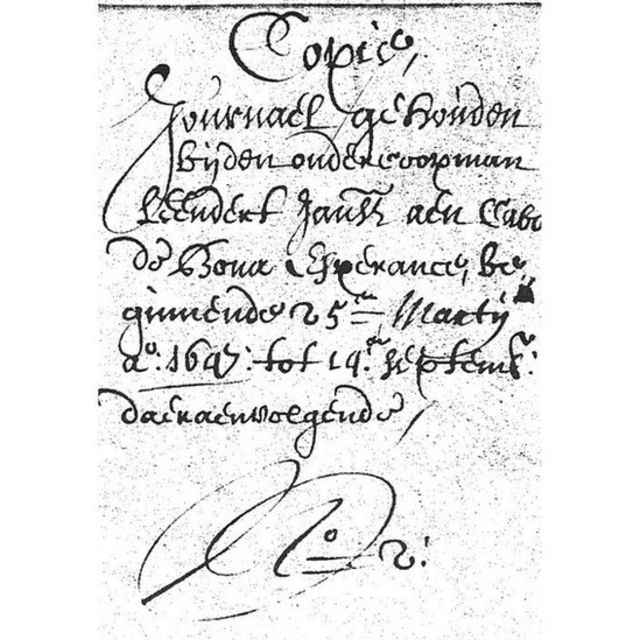 Copie,
Journael gehouden
bijden ondercoopman
Leendert Jansz aen Cabo
de Bona Esperance, be,,
ginnende 25en Martij
ao: 1647: tot 14en Septemb:
daeraenvolgende,
No 2: